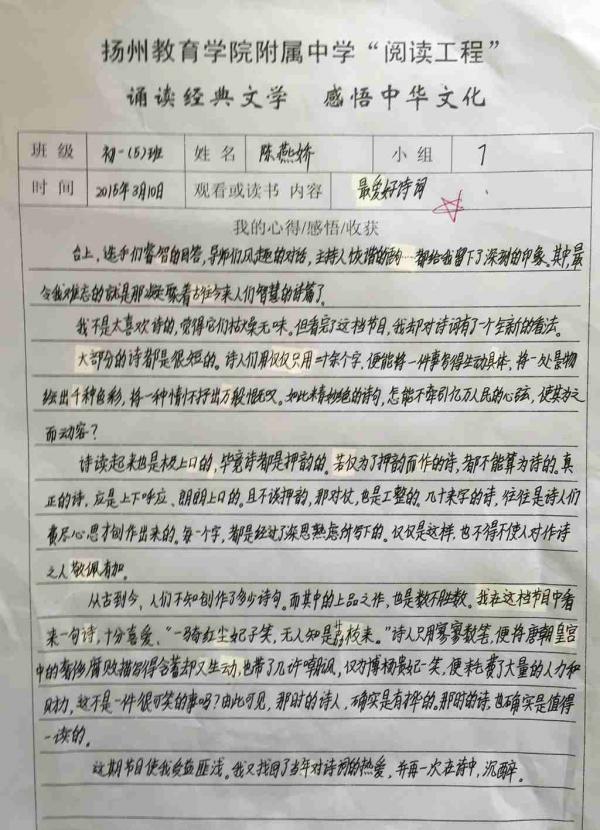 扬州教育学院附属中学“阅读工程”
诵读经典文学 感悟中华文化
班级 初一(5)班 姓名 陈燕娇 小组 7
时间 2015年3月10日 观看或读书内容 最爱好诗词
我的心得/感悟/收获
台上,选手们睿智的回答,导师们风趣的对话,主持人诙谐的……都给我留下了深刻的印象。其中,最
令我难忘的就是那凝聚着古往今来人们智慧的诗篇了。
我不是太喜欢诗的,觉得它们枯燥无味。但看完了这档节目,我却对诗词有了一个全新的看法。
大部分的诗都是很短的。诗人们用仅仅只用二十来个字,便能将一件事写得生动具体,将一处景物
绘出千种色彩,将一种情怀抒出万般慨叹。如此来看妙绝的诗句,怎能不牵引亿万人民的心弦,使其为之
而动容?
诗读起来也是极上口的,毕竟诗都是押韵的。若仅为了押韵而作的诗,都不能算为诗的。真
正的诗,应是上下呼应、朗朗上口的。且不谈押韵,那对仗,也是工整的。几十来字的诗,往往是诗人们
费尽心思才创作出来的。每一个字,都是经过了深思熟虑所写下的。仅仅是这样,也不得不使人对作诗
之人敬佩有加。
从古到今,人们不知创作了多少诗句。而其中的上品之作,也是数不胜数。我在这档节目中看
来一句诗,十分喜爱、“一骑红尘妃子笑,无人知是荔枝来。”诗人只用寥寥数笔,便将唐朝皇宫
中的奢侈腐败描写得含蓄却又生动,也带了几许嘲讽,仅为博杨贵妃一笑,便来耗费了大量的人力和
财力,这不是一件很可笑的事吗?由此可见,那时的诗人,确实是有才华的。那时的诗,也确实是值得
一读的。
这期节目使我受益匪浅。我又找回了当年对诗词的热爱,并再一次在诗中,沉醉。